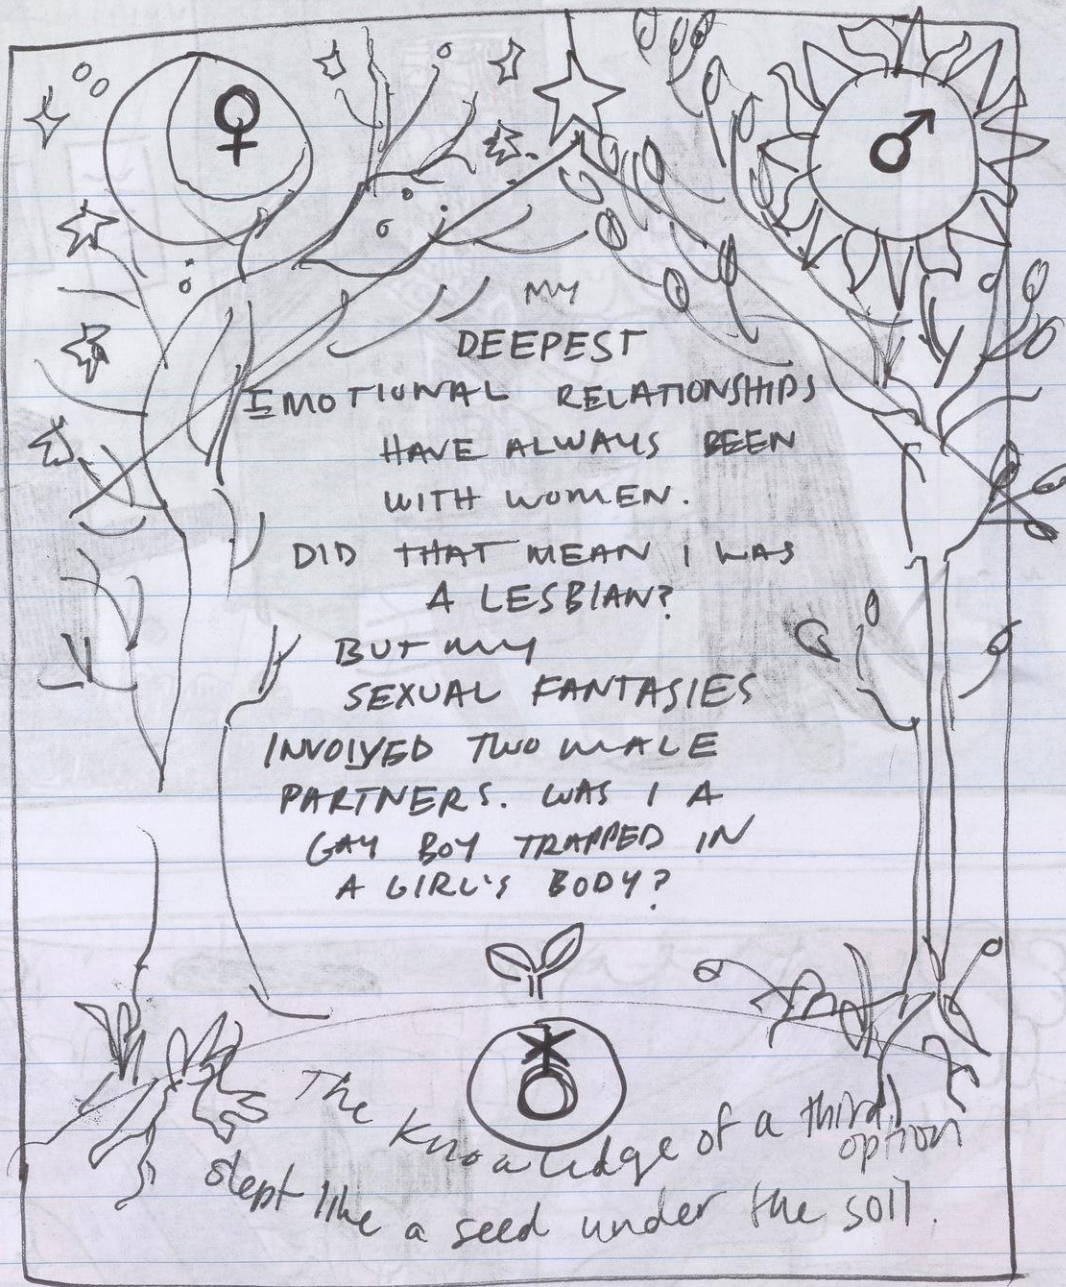 MY
DEEPEST
EMOTIONAL RELATIONSHIPS
HAVE ALWAYS BEEN
WITH WOMEN.
DID THAT MEAN I WAS
A LESBIAN?
BUT MY
SEXUAL FANTASIES
INVOLVED TWO MALE
PARTNERS. WAS I A
GAY BOY TRAPPED IN
A GIRL'S BODY?
The knowledge of a third option
slept like a seed under the soil.